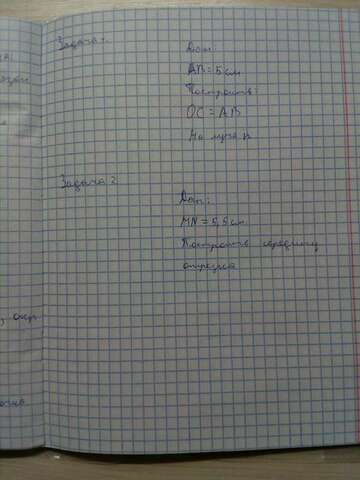 Задача 1
Дан:
AB = 5 см
Построить:
OC = AB
На луче h
Задача 2
Дан:
MN = 5,5 см
Построить середину
отрезка